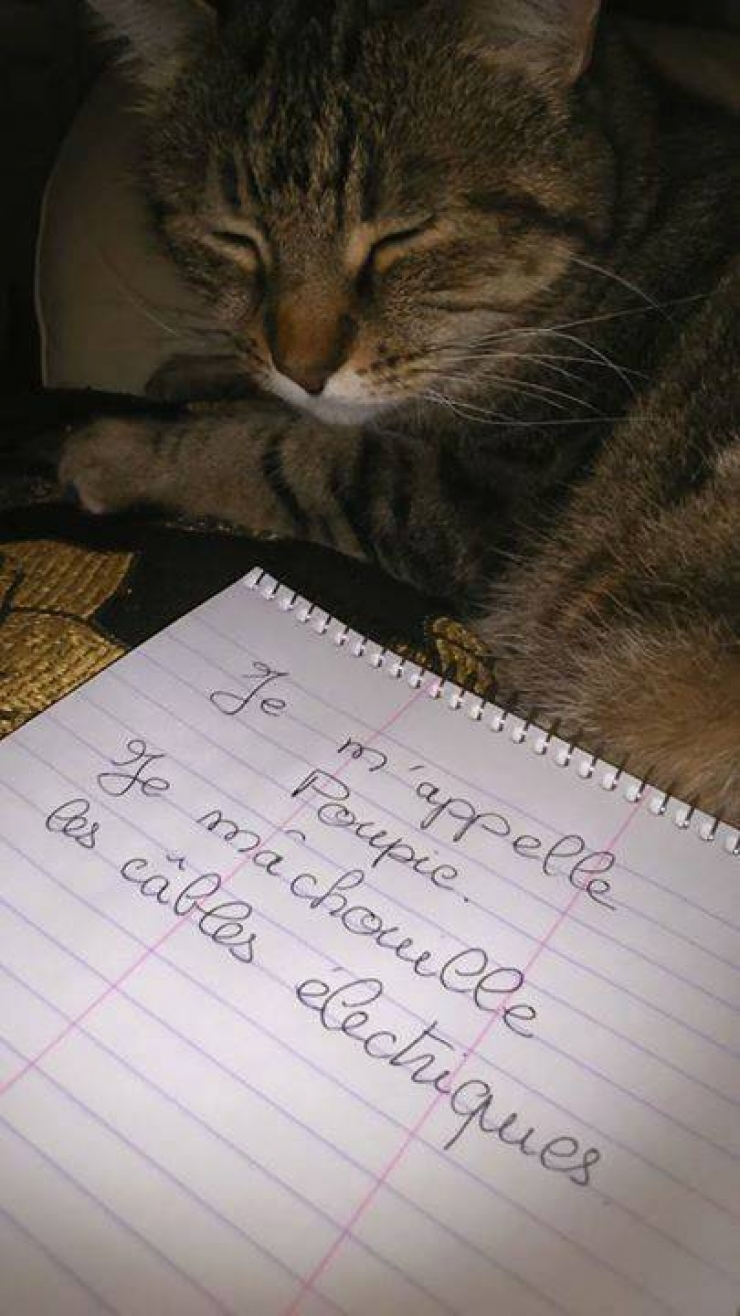 Je m'appelle
Poupie.
Je mâchouille
les câbles électriques